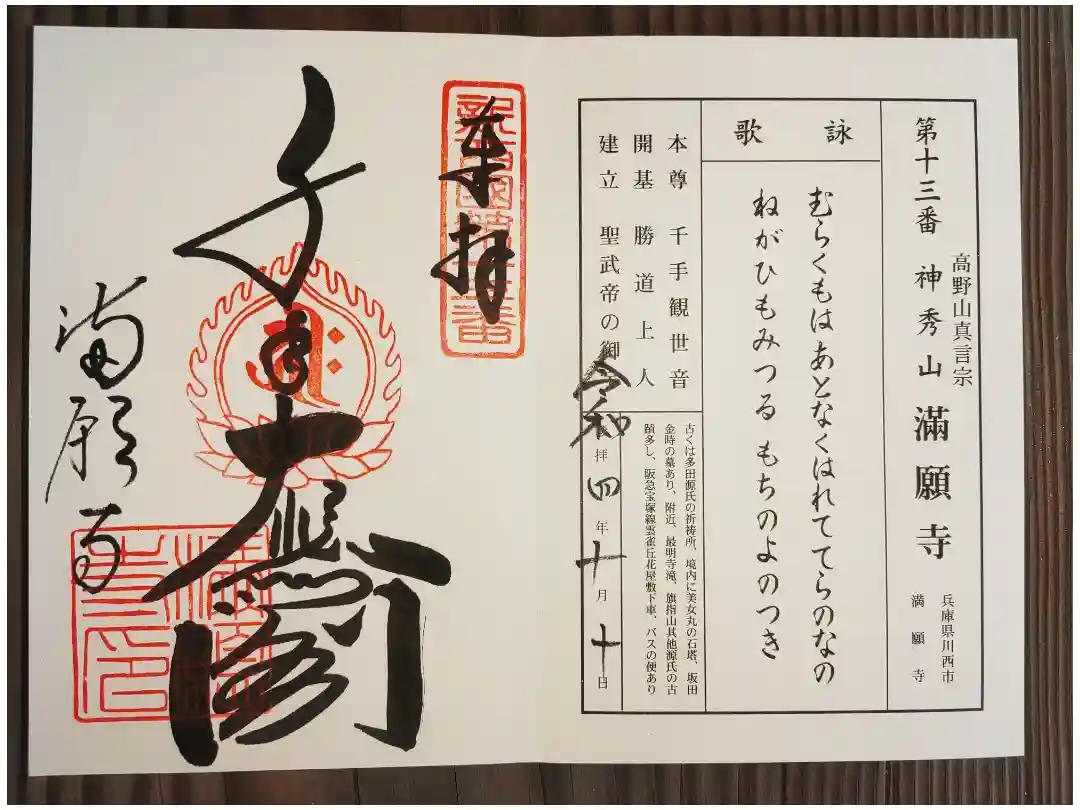 第十三番 神秀山 滿願寺
高野山真言宗
兵庫県川西市
満願寺
詠歌
むらくもはあとなくはれててらのなの
ねがひもみつる もちのよのつき
本尊 千手観世音
開基 勝道上人
建立 聖武帝の御
古くは多田源氏の祈祷所、境内に美女丸の石塔、坂田
金時の墓あり、附近、最明寺滝、旗指山其他源氏の古
蹟多し、阪急宝塚線雲雀丘花屋敷下車、バスの便あり
令和 拝 四年十月十日
奉拝
千手大悲閣
満願寺